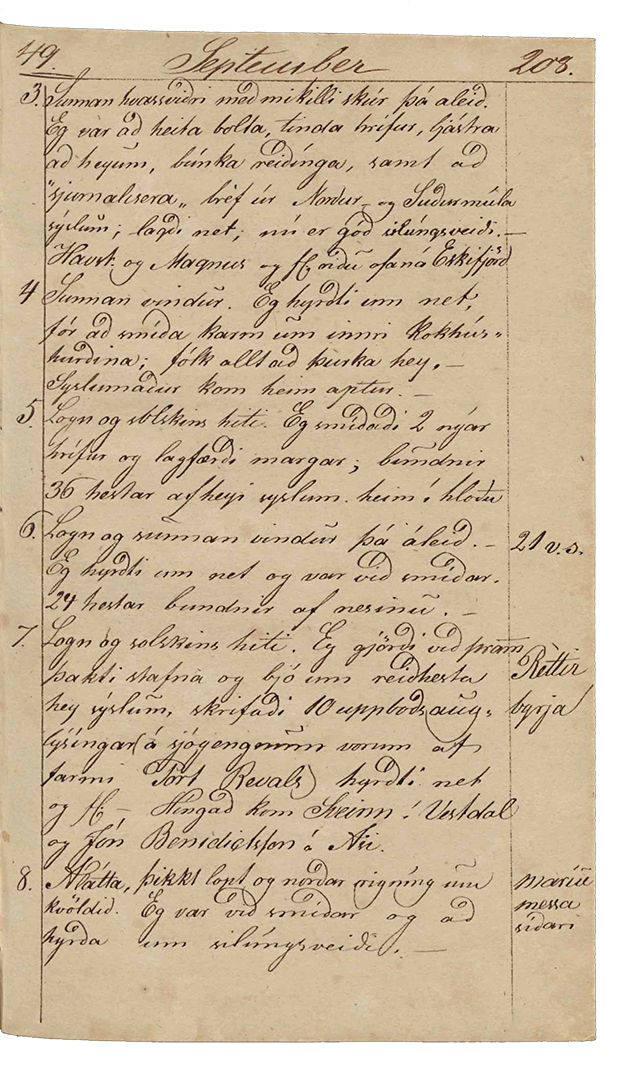 49. September 208.
3. Sunnan hvassviðri með mikilli skúr þá áleið.
Eg var að heita bolta, tinda hrífur, ljástra
að heyum, búnka reiðínga, samt að
"sjurnalisera„ bréf úr Norður- og Suðurmúla
sýslum; lagði net; nú er góð silúngsveiði. –
Havst. og Magnus og riðu ofaná Eskifjörð
4 Sunnan vindur. Eg hyrdti um net,
fór að smíða karm um innri Kokhús-
hurðina; fólk allt að þurka hey. –
Syslumaður kom heim aptur. –
5. Logn og sólskins hiti. Eg smíðaði 2 nýar
hrífur og lagfærði margar; bundnir
36 hestar af heyi syslum. heim í hlöðu
6. Logn og sunnan vindur þá áleið. – 21 v. s.
Eg hyrdti um net og var við smíðar.
24 hestar bundnir af nesinu. –
7. Logn og solskins hiti. Eg gjörði við pram
þakti stafna og bjó um reiðhesta Réttir
hey sýslum, skrifaði 10 uppboðsaug- byrja
lýsíngar (á sjógengnum vorum af
farmi Fort Revals) hyrdti net
og H – Híngað kom Steinn í Vestdal
og Jón Benidictsson á Ási.
8. Nátta, þikkt lopt og norðar rigníng um mariu
kvöldið. Eg var við smíðar og að messa
hyrða um silúngsveiði. – síðari